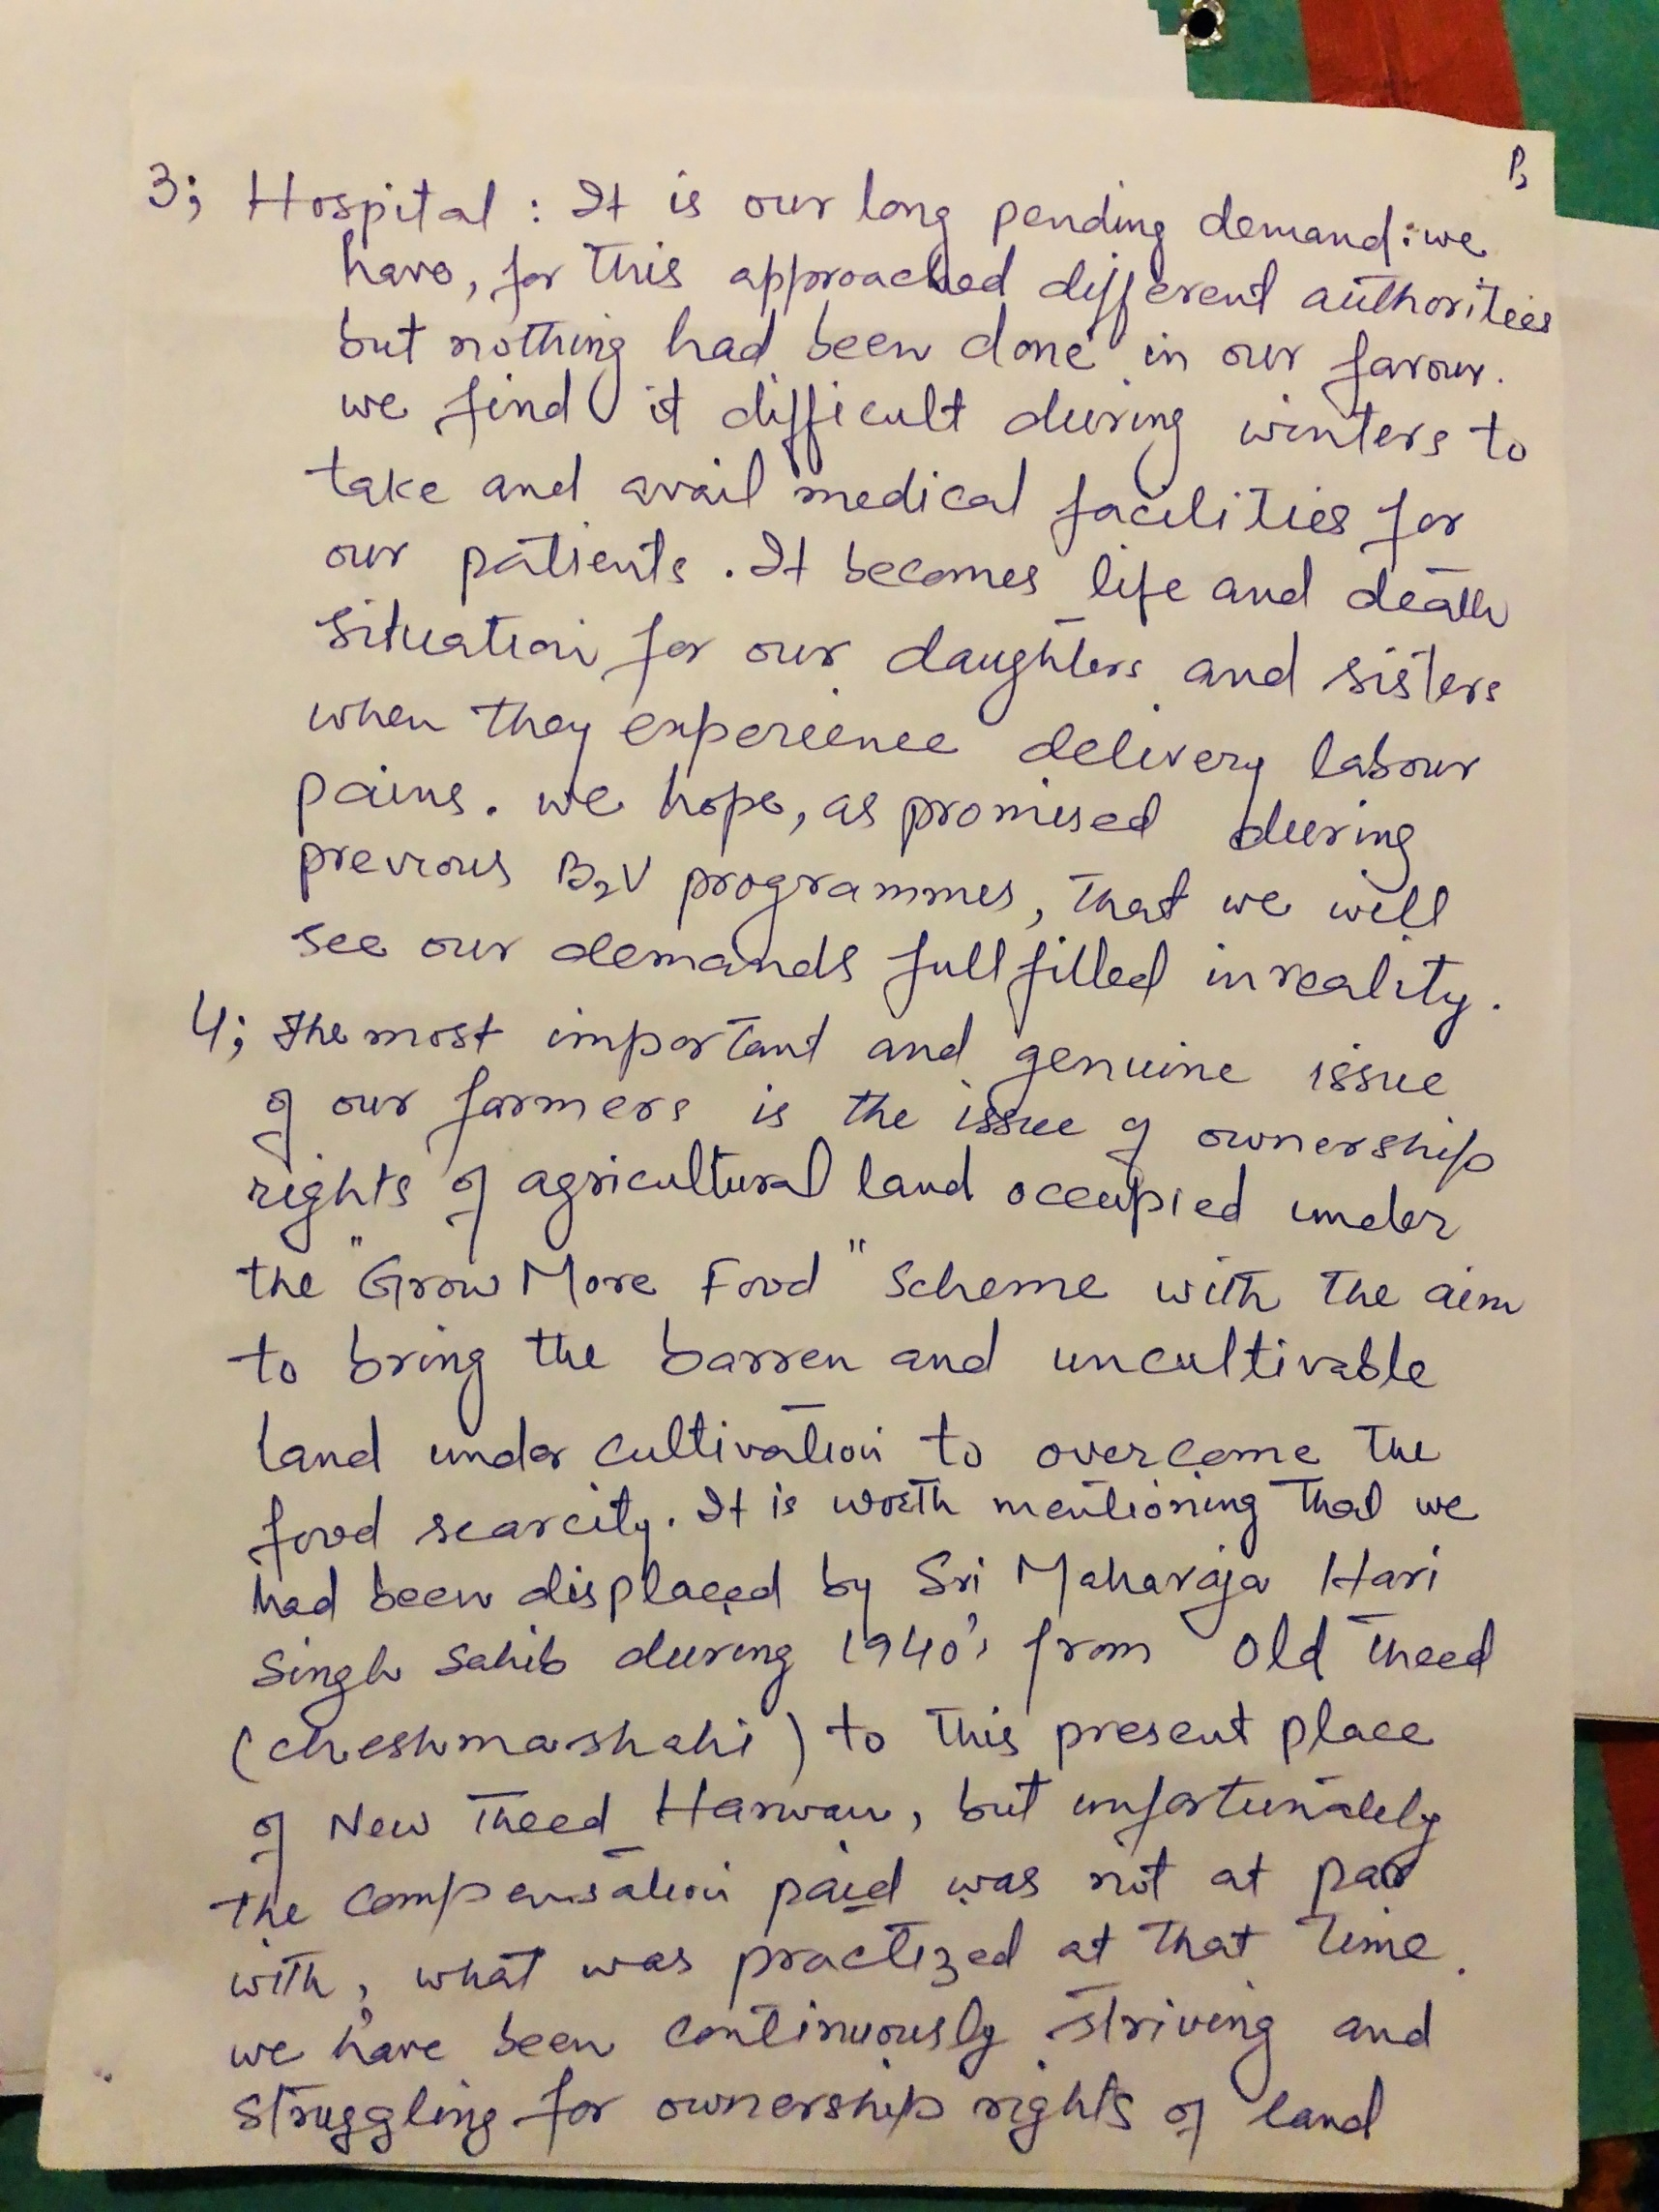 3; Hospital : It is our long pending demand: we
have, for this approached different authorities
but nothing had been done in our favour.
we find it difficult during winters to
take and avail medical facilities for
our patients. It becomes life and death
situation for our daughters and sisters
when they experience delivery labour
pains. we hope, as promised during
previous B2V programmes, that we will
see our demands fullfilled in reality.
4; The most important and genuine issue
of our farmers is the issue of ownership
rights of agricultural land occupied under
the "Grow More Food" Scheme with the aim
to bring the barren and uncultivable
land under cultivation to overcome the
food scarcity. It is worth mentioning that we
had been displaced by Sri Maharaja Hari
Singh Sahib during 1940's from Old Theed
(cheshmashahi) to this present place
of New Theed Harwan, but unfortunately
the compensation paid was not at par
with, what was practized at that time.
we have been continuously striving and
struggling for ownership rights of land